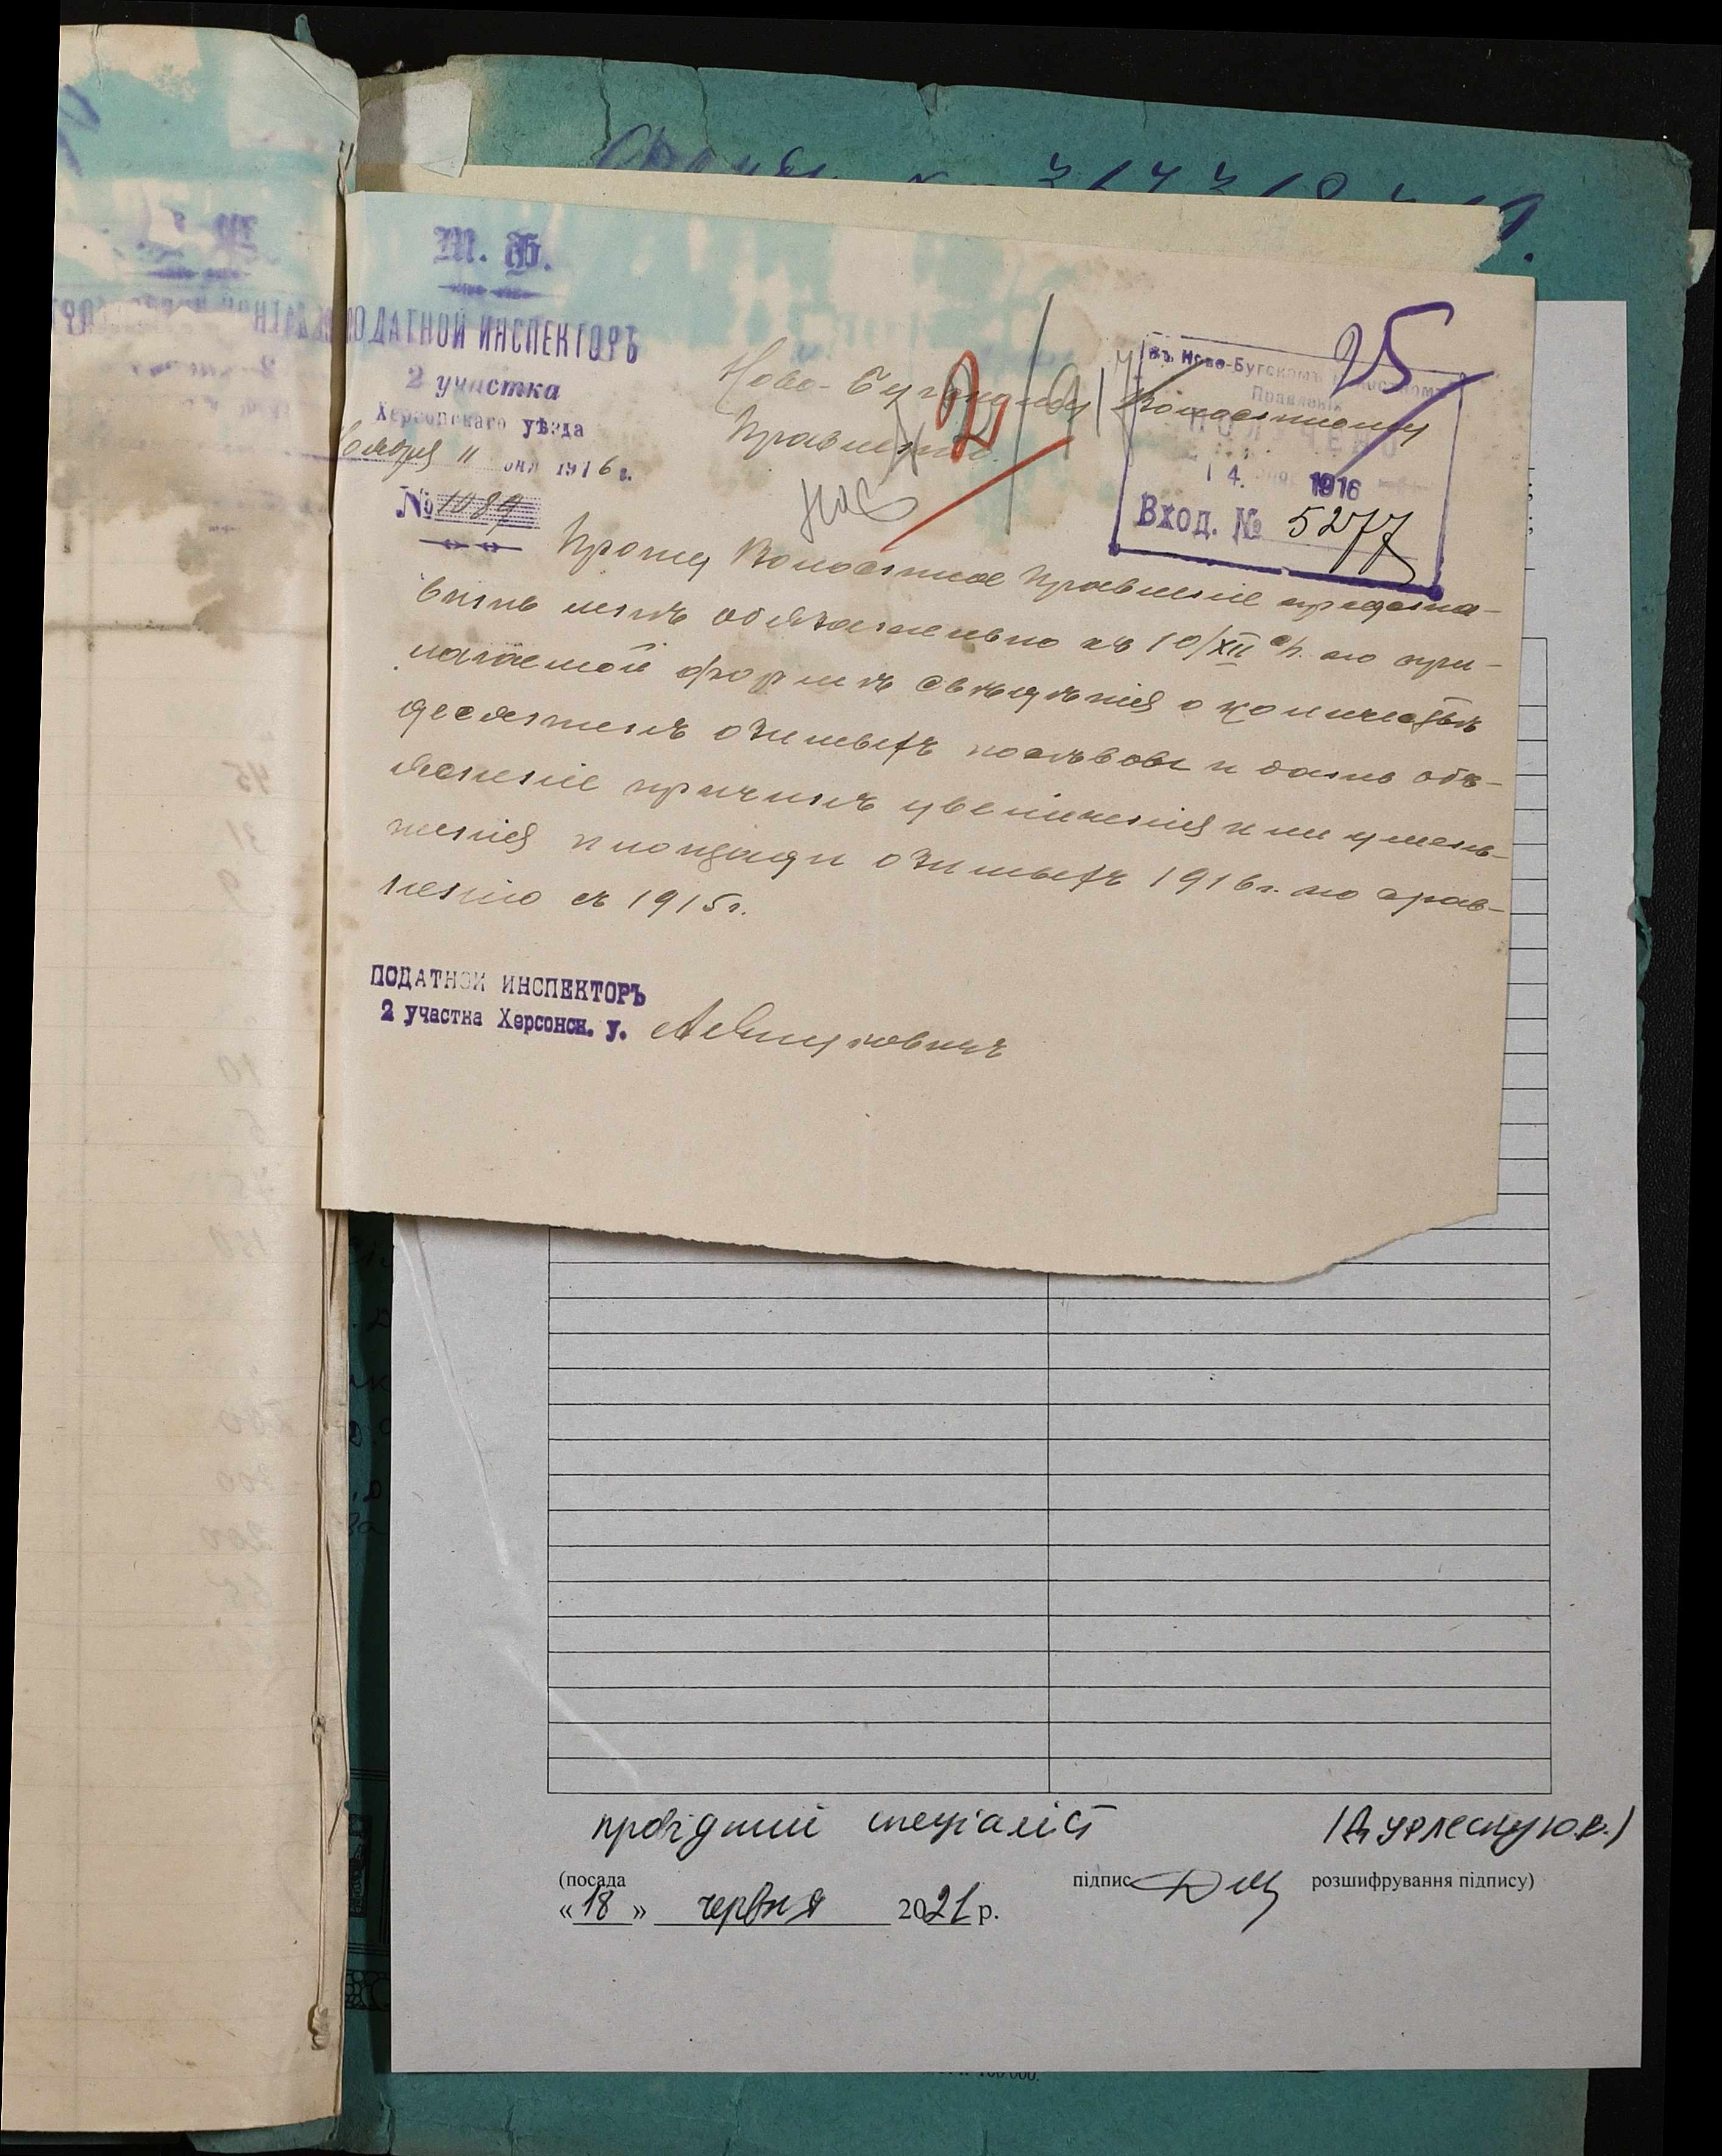 М. Ф.
ПОДАТНОЙ ИНСПЕКТОРЪ
2 участка
Херсонскаго уѣзда
Ноября 11 дня 1916 г.
№ 1089
Ново-Бугскому Волостному
Правленію.
25
2
въ Ново-Бугскомъ Волостномъ
Правленіи
ПОЛУЧЕНО
14. 1916
Вход. № 5277
Прошу Волостное Правленіе предста-
вить мнѣ обязательно къ 10/XII с/г. по при-
лагаемой формѣ свѣдѣнія о количествѣ
десятинъ озимыхъ посѣвовъ и дать объ-
ясненіе причинъ увеличенія или умень-
шенія площади озимыхъ 1916 г. по срав-
ненію съ 1915 г.
ПОДАТНОЙ ИНСПЕКТОРЪ
2 участка Херсонск. у.
провідний спеціаліст
(посада
підпис
розшифрування підпису)
« 18 » червня 2021 р.